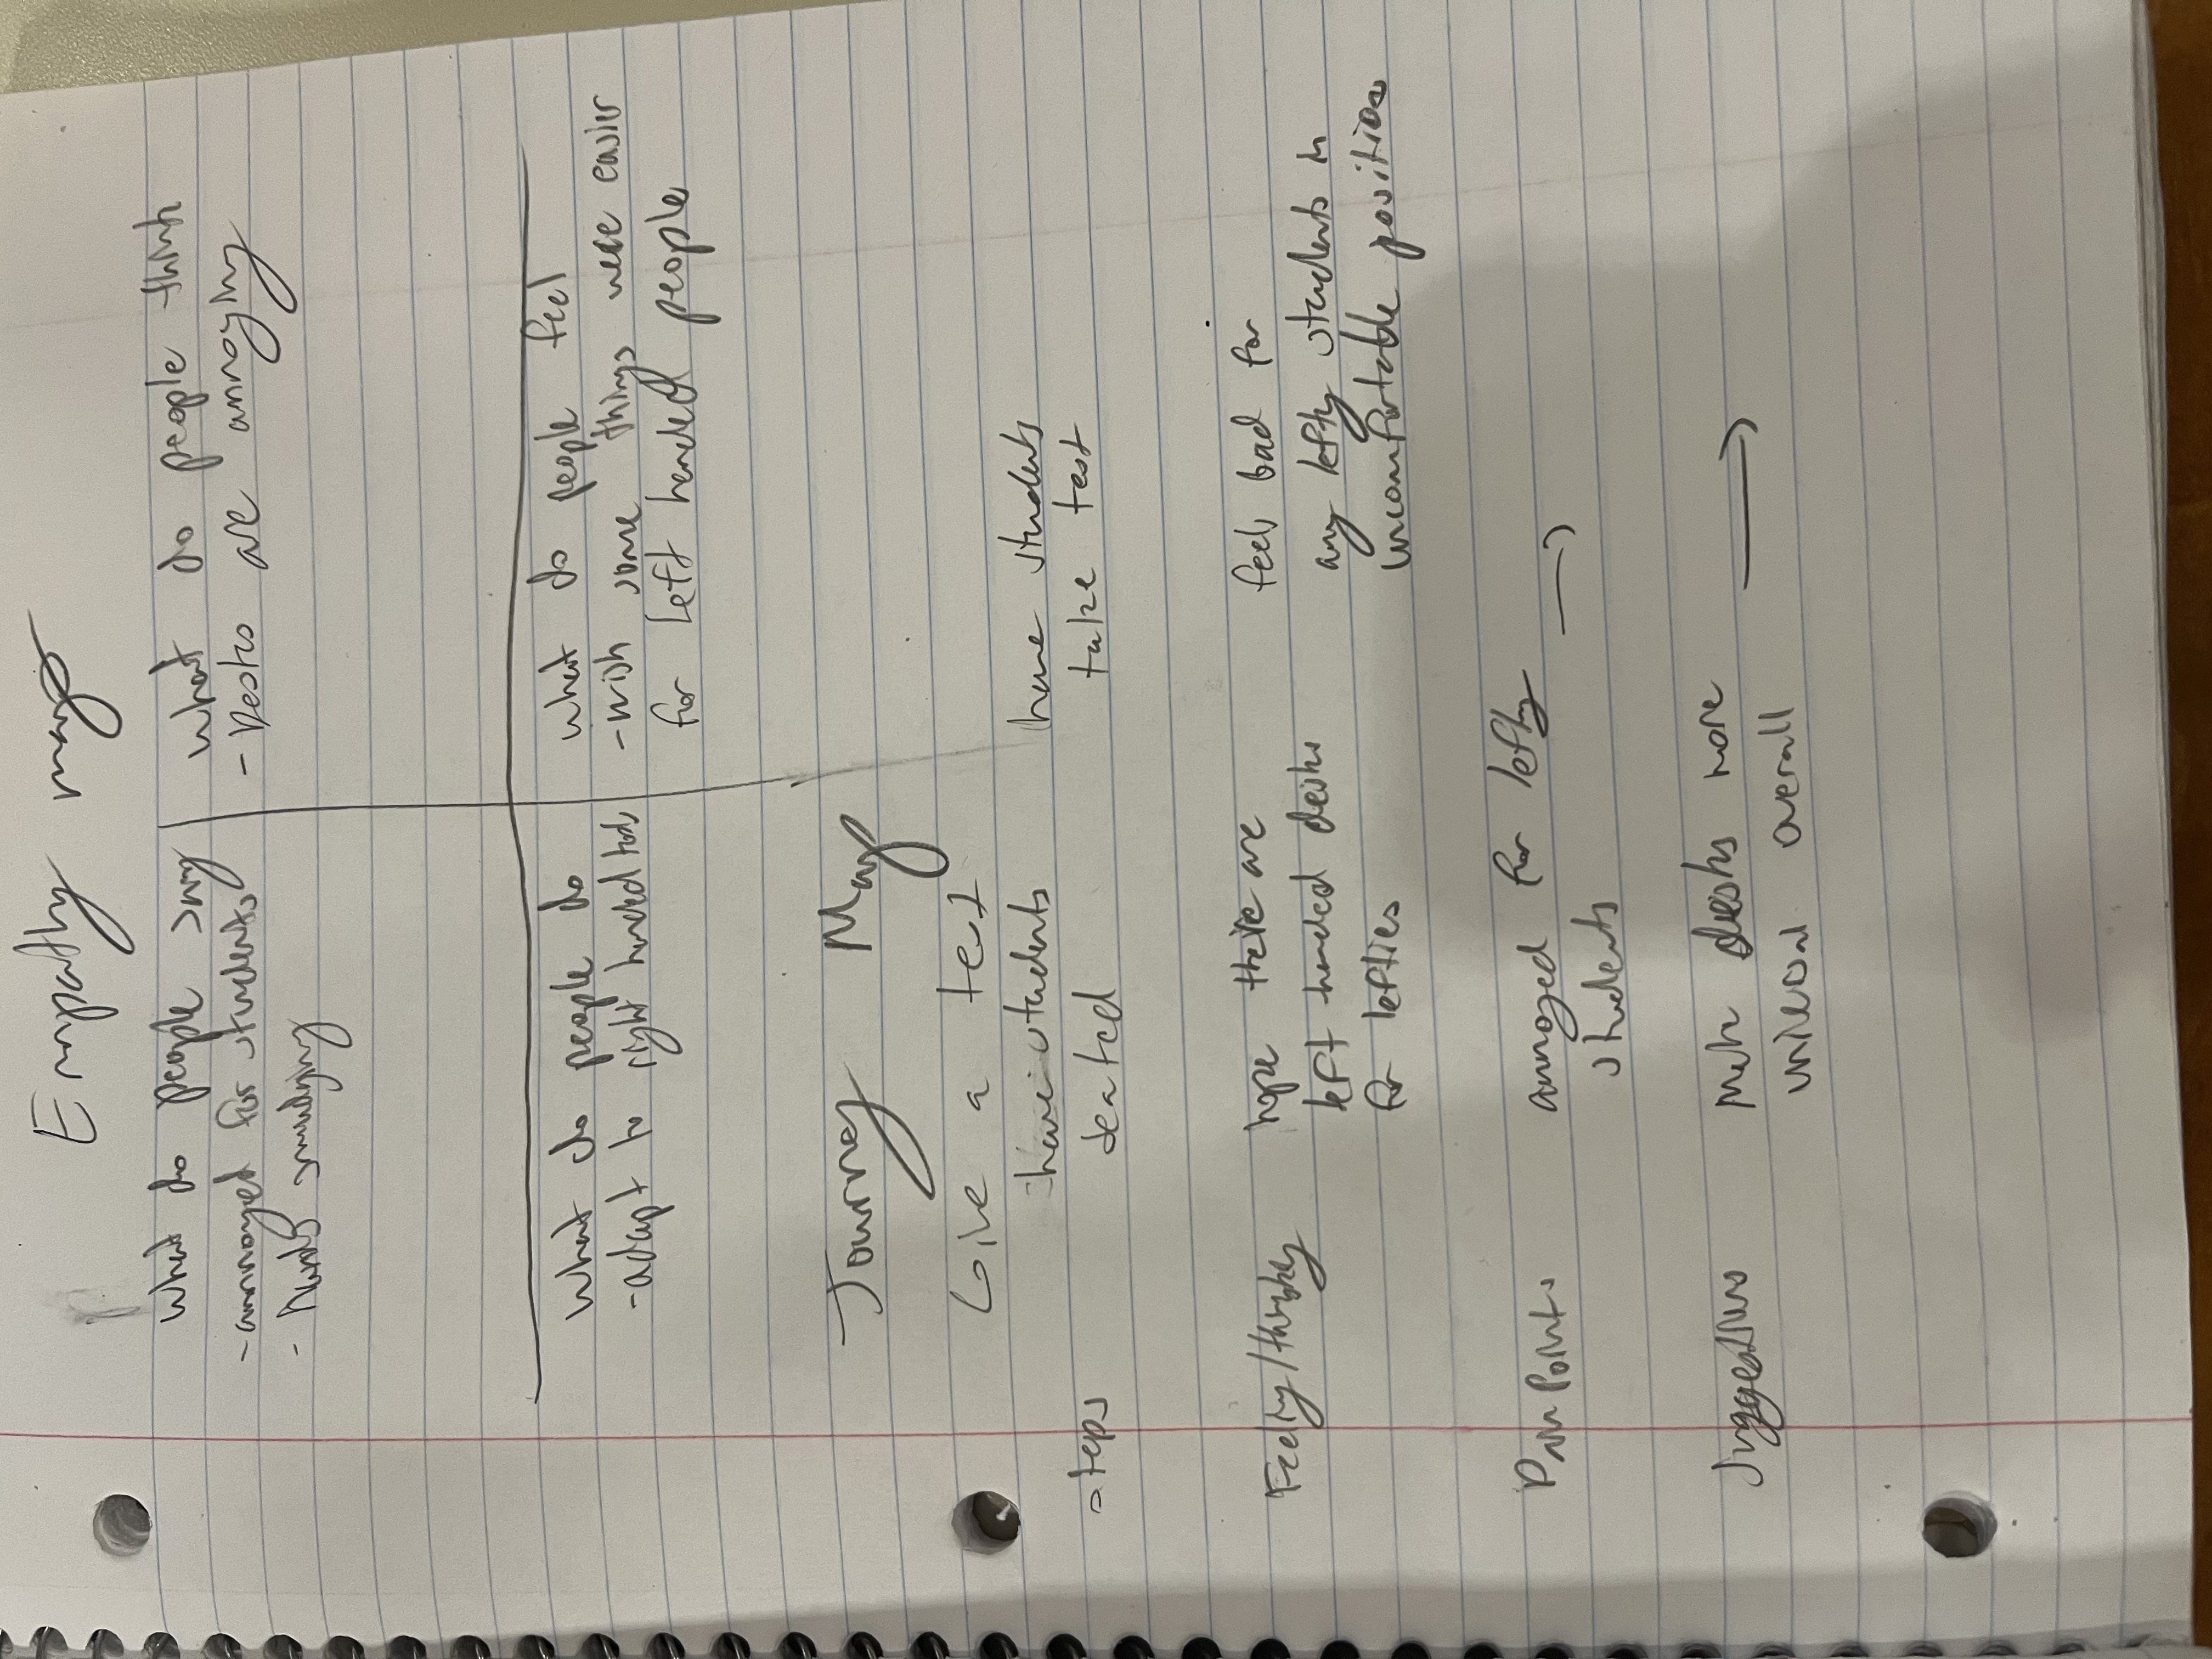 Empathy map
what do people say
- annoyed for students
- Hands smudging
what do people think
- Desks are annoying
what do people do
- adapt to right handed tools
what do people feel
- wish some things were easier
for left handed people
Journey Map
Give a test
steps
have students
seated
have students
take test
Feeling/thinking
hope there are
left handed desks
for lefties
feels bad for
any lefty students in
uncomfortable positions
Pain Points
annoyed for lefty
students
→
Suggestions
Make desks more
universal overall
→